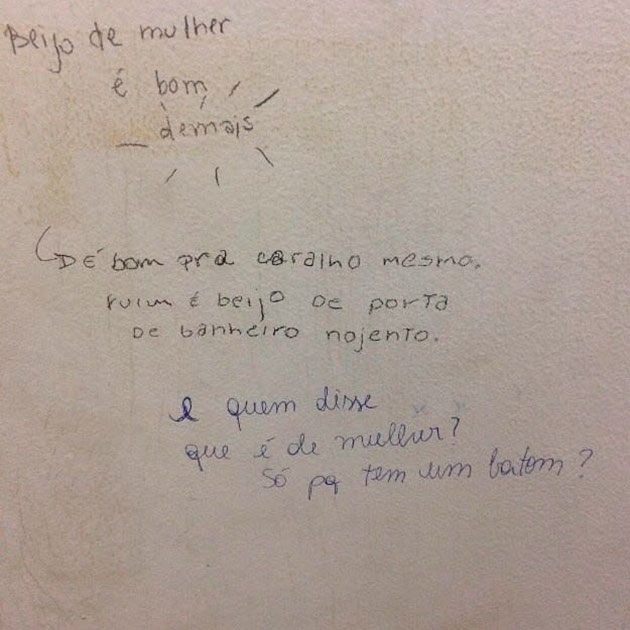 Beijo de mulher
é bom
demais
É bom pra caralho mesmo.
ruim é beijo de porta
de banheiro nojento.
e quem disse
que é de mulher?
Só pq tem um batom?